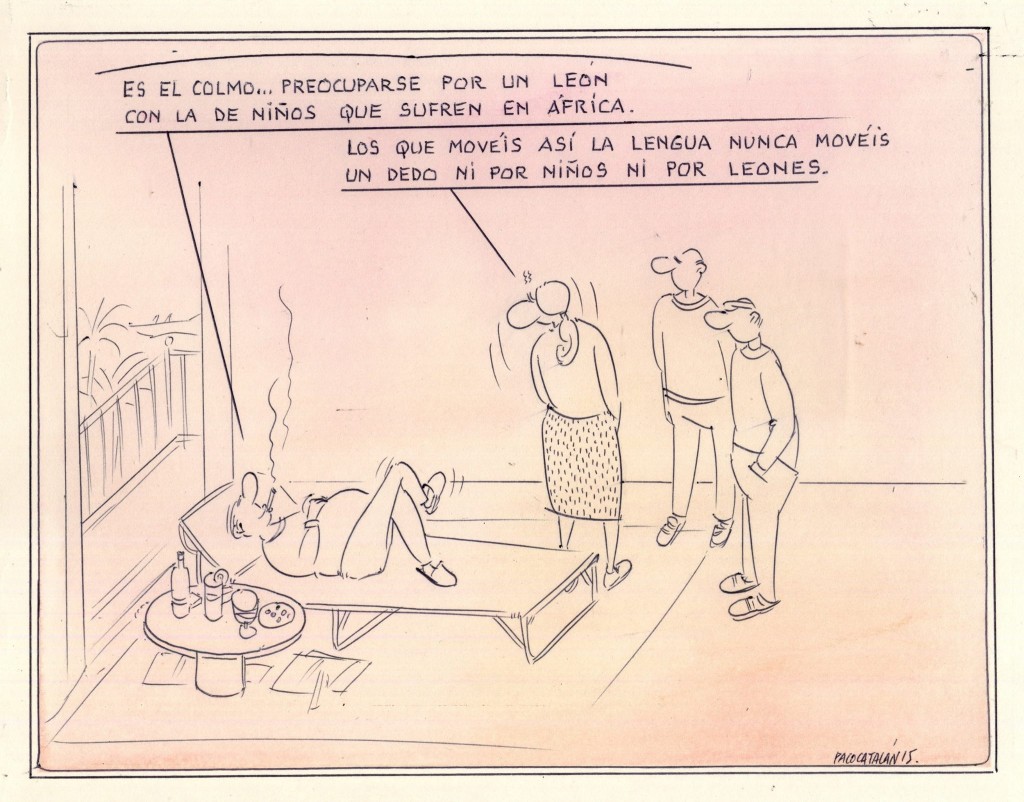 ES EL COLMO... PREOCUPARSE POR UN LEÓN
CON LA DE NIÑOS QUE SUFREN EN ÁFRICA.
LOS QUE MOVÉIS ASÍ LA LENGUA NUNCA MOVÉIS
UN DEDO NI POR NIÑOS NI POR LEONES.
PACOCATALÁN 15.